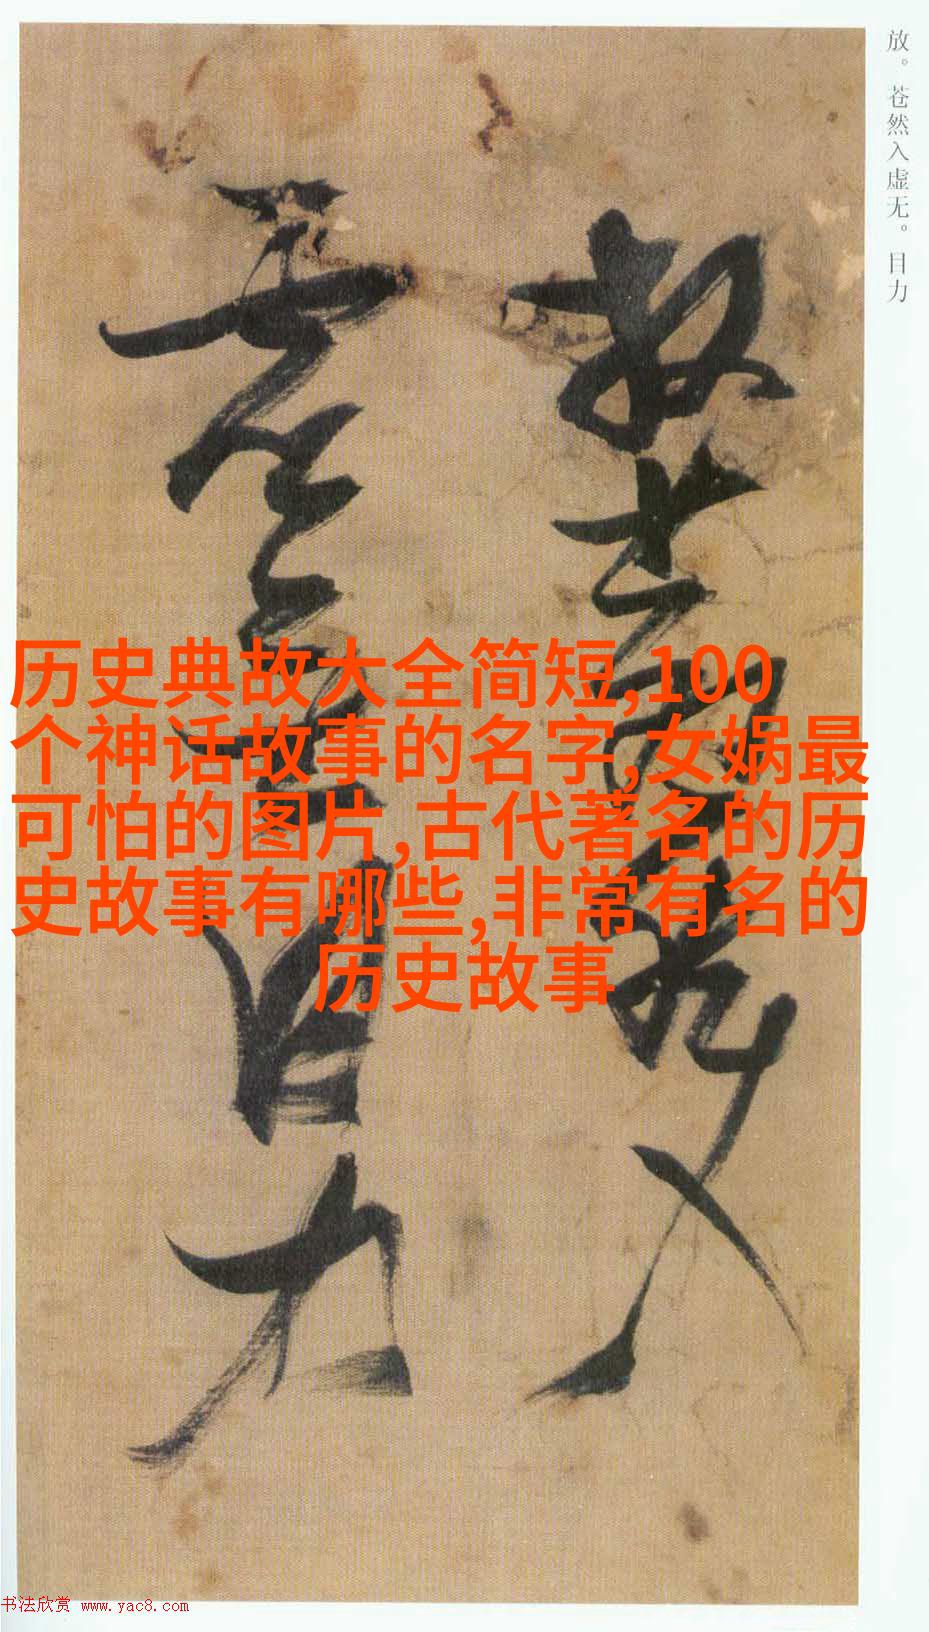 放。苍然入虚无。目力
放苍然入
虚无目力
历史典故大全简短,100
个神话故事的名字,女娲最
可怕的图片,古代著名的历
史故事有哪些,非常有名的
历史故事
书法欣赏 www.yac8.com